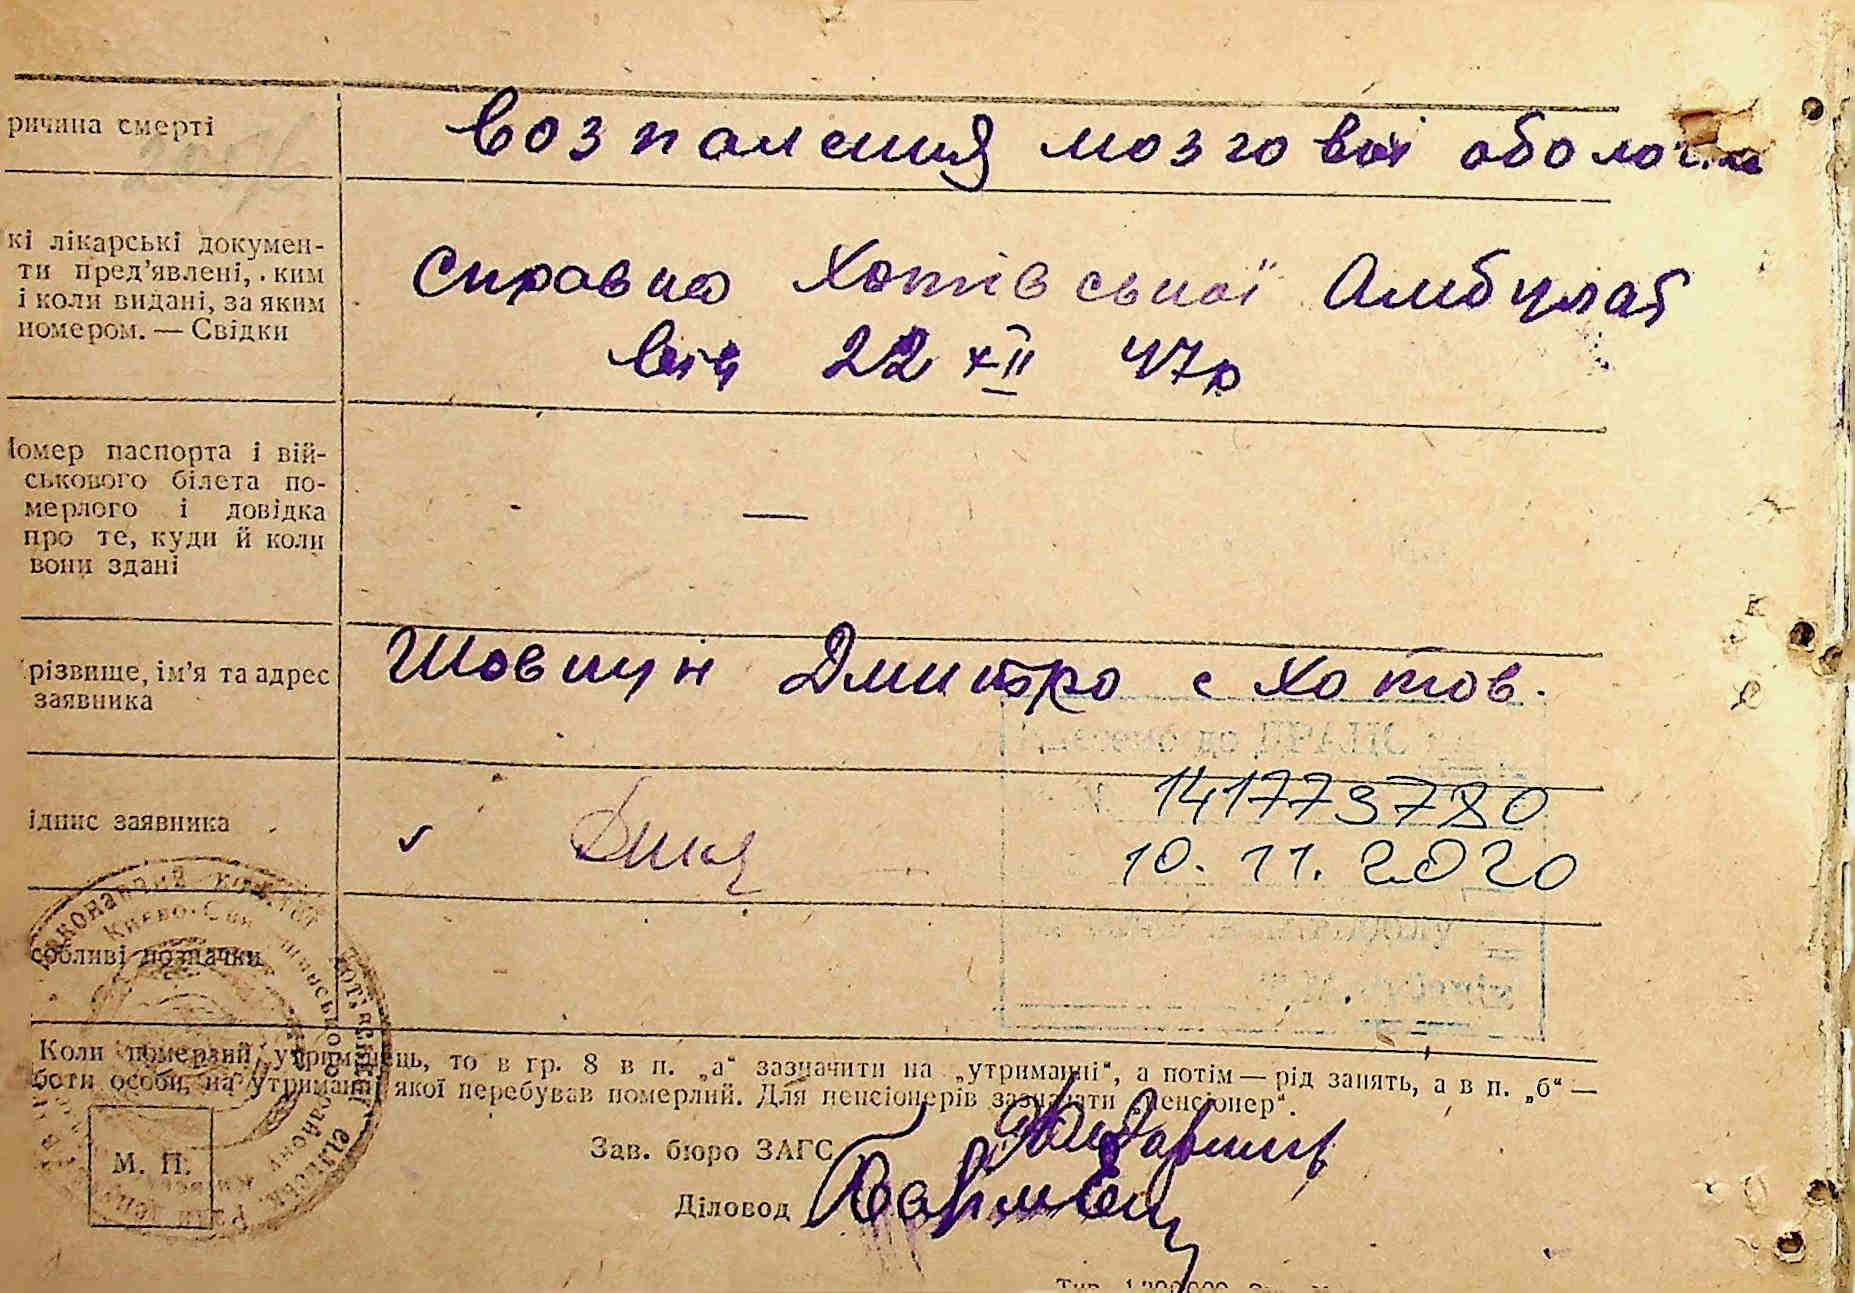 ричина смерті
возпаления мозгової оболочки
кі лікарські докумен-
ти пред'явлені, ким
і коли видані, за яким
номером. — Свідки
Справка Хотівської Амбулат
від 22 XII 47р
Номер паспорта і вій-
ськового білета по-
мерлого і довідка
про те, куди й коли
вони здані
—
різвище, ім'я та адрес
заявника
Шовкун Дмитро с Хотов.
ідпис заявника
141773780
10.11.2020
собливі позначки
Коли померлий утриманець, то в гр. 8 в п. „а“ зазначити на „утриманні“, а потім — рід занять, а в п. „б“ —
боти особи, на утриманні якої перебував померлий. Для пенсіонерів зазначати „пенсіонер“.
Зав. бюро ЗАГС
Діловод
М. П.